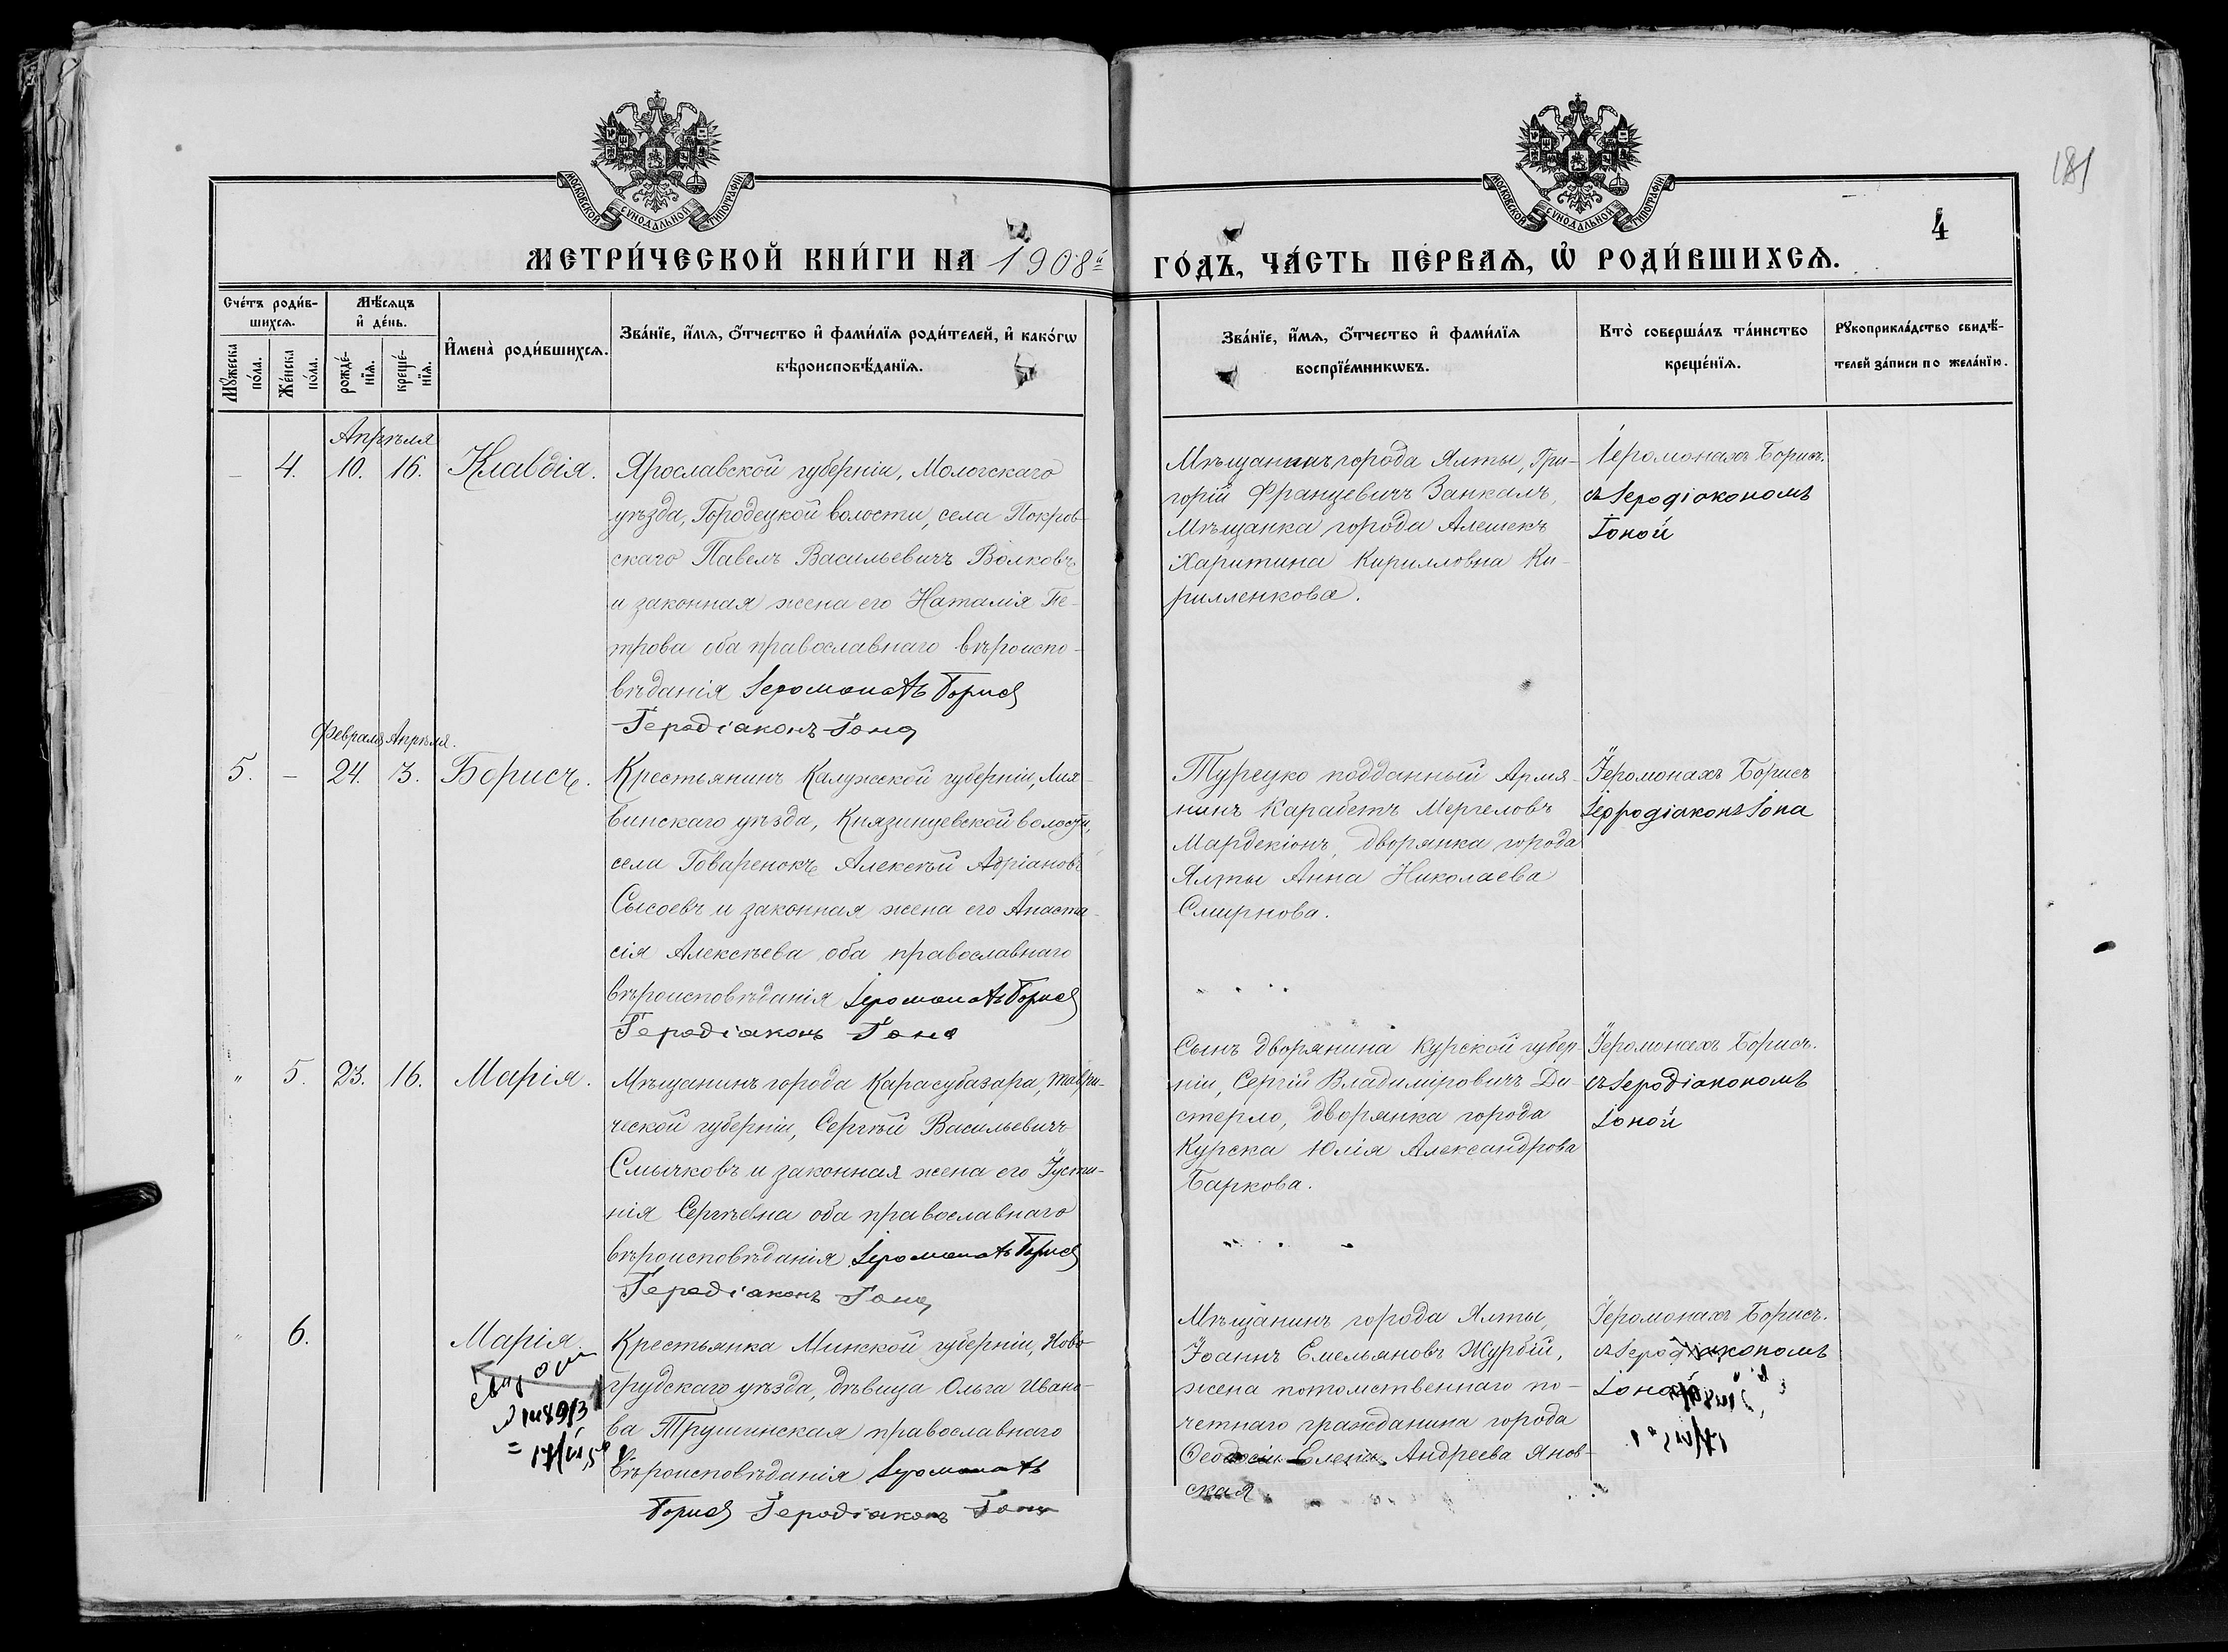 181
МОСКОВСКОЙ СѴНОДАЛЬНОЙ ТИПОГРАФІИ
МОСКОВСКОЙ СѴНОДАЛЬНОЙ ТИПОГРАФІИ
4
МЕТРИ́ЧЕСКОЙ КНИ́ГИ НА 1908й
ГО́ДЪ, ЧА́СТЬ ПЕ́РВАѦ, Ѡ҆ РОДИ́ВШИХСѦ.
Сче́тъ роди́в-
шихсѧ.
Мѣ́сѧцъ
и҆ де́нь.
Мꙋ́жеска
по́ла.
Же́нска
по́ла.
рожде́-
нїѧ.
креще́-
нїѧ.
И҆мена̀ роди́вшихсѧ.
Зва́нїе, и҆́мѧ, ѻ҆́тчество и҆ фами́лїѧ роди́телей, и҆ како́гѡ
вѣроисповѣ́данїѧ.
Зва́нїе, и҆́мѧ, ѻ҆́тчество и҆ фами́лїѧ
воспрїе́мникѡвъ.
Кто̀ соверша́лъ та́инство
креще́нїѧ.
Рꙋкоприкла́дство свидѣ́-
телей за́писи по жела́нїю.
Апрѣля
– 4. 10. 16. Клавдія.
Ярославской губерніи, Мологскаго
уѣзда, Городецкой волости, села Покров-
скаго Павелъ Васильевичъ Волковъ
и законная жена его Наталія Пе-
трова оба православнаго вѣроиспо-
вѣданія Іеромонахъ Борисъ
Іеродіаконъ Іона
Мѣщанинъ города Ялты, Гри-
горій Францевичъ Занкалъ,
Мѣщанка города Алешекъ
Харитина Кирилловна Ки-
рилленкова.
Іеромонахъ Борисъ.
съ Іеродіакономъ
Іоной
Февраля Апрѣля.
5. – 24. 3. Борисъ.
Крестьянинъ Калужской губерніи, Лих-
винскаго уѣзда, Князищевской волости,
села Говаренокъ Алексѣй Адріановъ
Сысоевъ и законная жена его Анаста-
сія Алексѣева оба православнаго
вѣроисповѣданія Іеромонахъ Борисъ
Іеродіаконъ Іона
Турецко подданный Армя-
нинъ Карабетъ Мергеловъ
Мардекіонъ, дворянка города
Ялты Анна Николаева
Смирнова.
Іеромонахъ Борисъ
Іеродіаконъ Іона
" 5. 23. 16. Марія.
Мѣщанинъ города Карасубазара, Таври-
ческой губерніи, Сергѣй Васильевичъ
Смычковъ и законная жена его Іусти-
нія Сергѣевна оба православнаго
вѣроисповѣданія Іеромонахъ Борисъ
Іеродіаконъ Іона
Сынъ дворянина Курской губер-
ніи, Сергій Владиміровичъ Ди-
стерло, дворянка города
Курска Юлія Александрова
Баркова.
Іеромонахъ Борисъ.
съ Іеродіакономъ
Іоной
" 6. Марія
Крестьянка Минской губерніи, Ново-
грудскаго уѣзда, дѣвица Ольга Ивано-
ва Трушинская православнаго
вѣроисповѣданія Іеромонахъ
Борисъ Іеродіаконъ Іона
Мѣщанинъ города Ялты,
Іоаннъ Емельяновъ Журбій,
жена потомственнаго по-
четнаго гражданина города
Ѳеодосіи Елена Андреева Янов-
ская
Іеромонахъ Борисъ.
съ Іеродіакономъ
Іоной